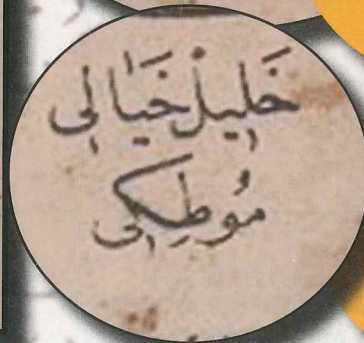 خَلِيلْ خَيَالِى
مُوطِكِى